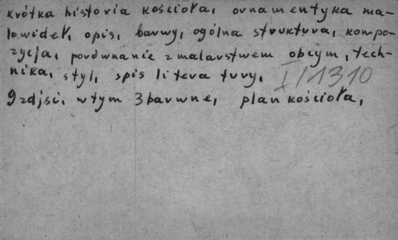 krótka historia kościoła, ornamentyka ma-
lowideł, opis, barwy, ogólna struktura, kompo-
zycja, porównanie z malarstwem obcym, tech-
nika, styl, spis literatury.
I/1310
9 zdjęć, w tym 3 barwne, plan kościoła,